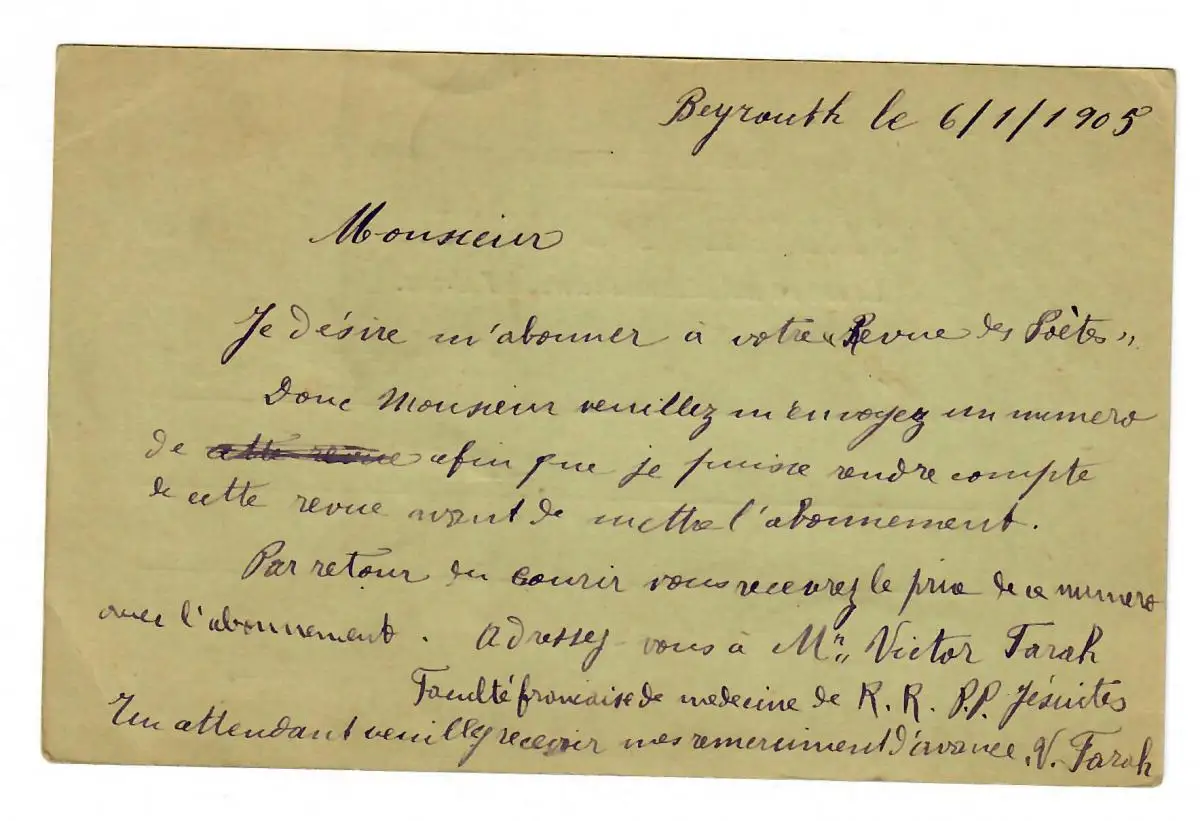 Beyrouth le 6/1/1905
Monsieur
Je désire m'abonner à votre « Revue des Poètes »
Donc Monsieur veuillez m'envoyez un numero
de cette revue afin que je puisse rendre compte
de cette revue avant de mettre l'abonnement.
Par retour du courir vous recevrez le prix de ce numero
avec l'abonnement. Adressez-vous à Mr,, Victor Farah
Faculté française de medecine de R. R. P.P. Jésuites
En attendant veuillez recevoir mes remerciment d'avance. V. Farah